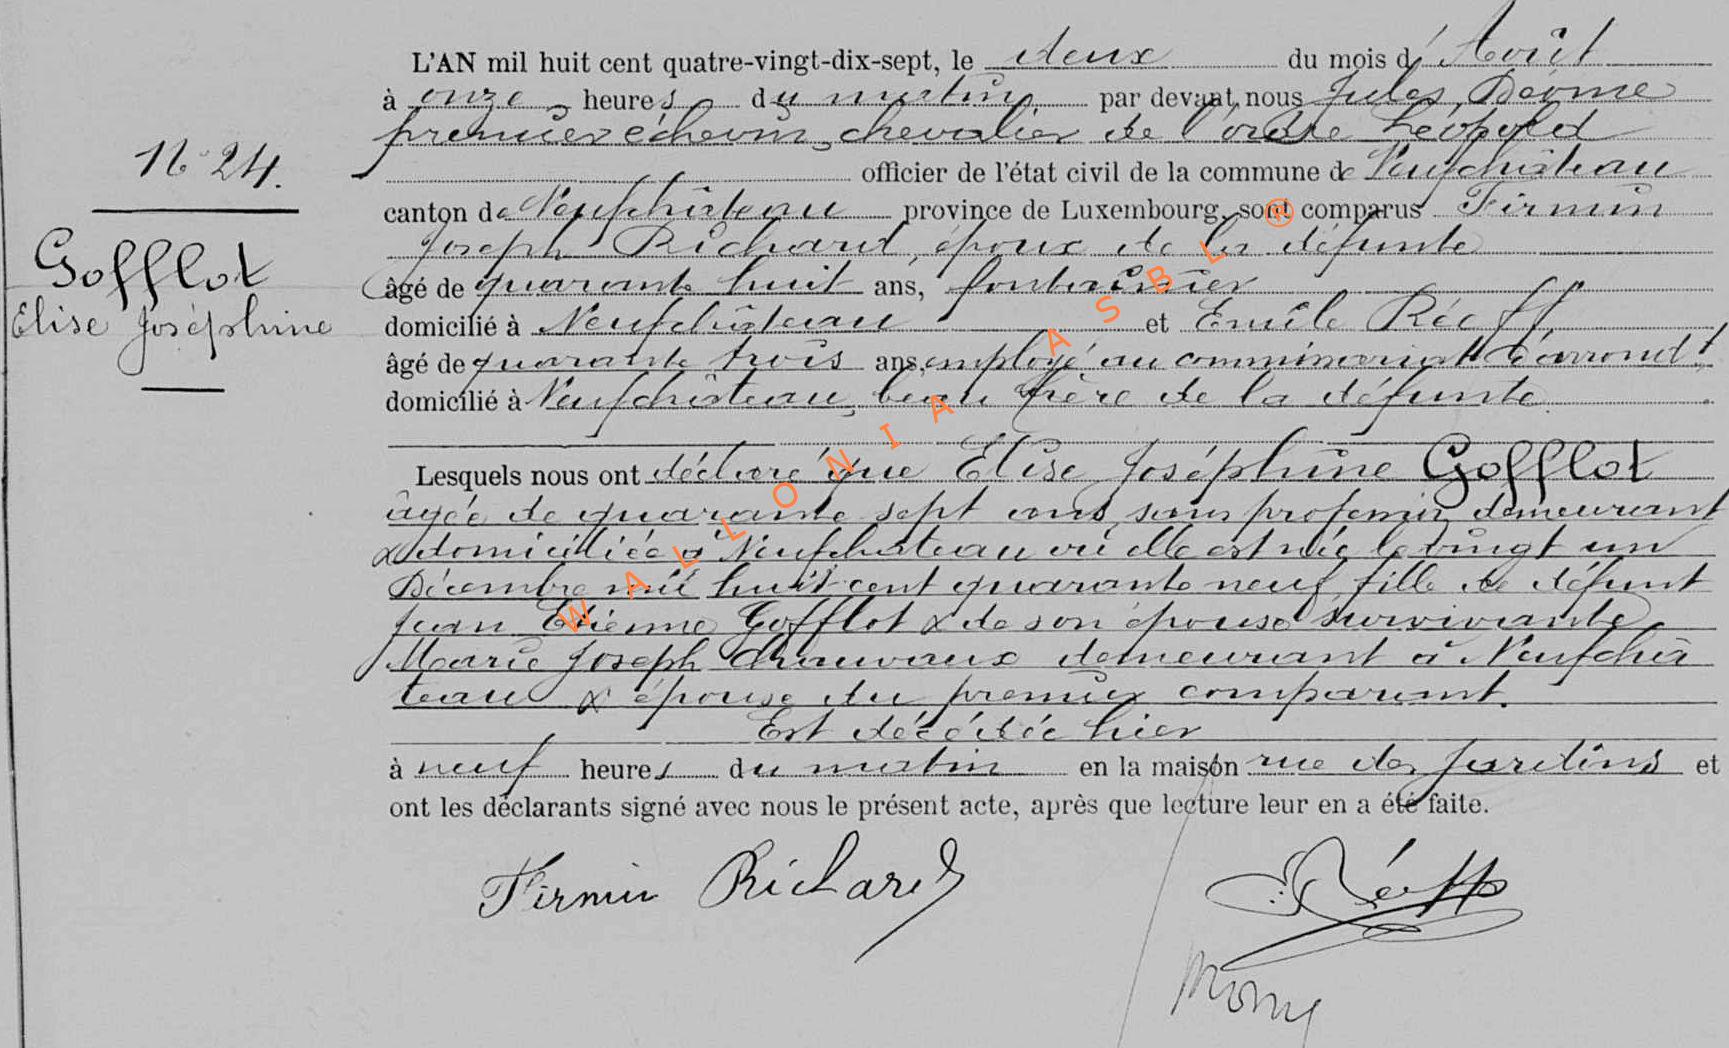 L'AN mil huit cent quatre-vingt-dix-sept, le deux du mois d'Août
à onze heures du matin par devant nous Jules
premier échevin, chevalier de l'ordre Léopold
officier de l'état civil de la commune de Neufchâteau
canton de Neufchâteau province de Luxembourg, sont comparus Firmin
Joseph Richard, époux de la défunte
âgé de quarante huit ans, fontainier
domicilié à Neufchâteau et Emile Réeff
âgé de quarante trois ans, employé au commissariat d'arrond.t
domicilié à Neufchâteau, beau frère de la défunte
Lesquels nous ont déclaré que Elise Joséphine Gofflot
âgée de quarante sept ans, sans profession, demeurant
& domiciliée à Neufchâteau où elle est née le vingt un
Décembre mil huit cent quarante neuf, fille de défunt
Jean Etienne Gofflot & de son épouse survivante
Marie Joseph demeurant à Neufchâ
teau & épouse du premier comparant.
Est décédée hier
à neuf heures du matin en la maison rue des Jardins et
ont les déclarants signé avec nous le présent acte, après que lecture leur en a été faite.
N° 24.
Gofflot
Elise Joséphine
Firmin Richard
Réeff
WALLONIA ASBL ®